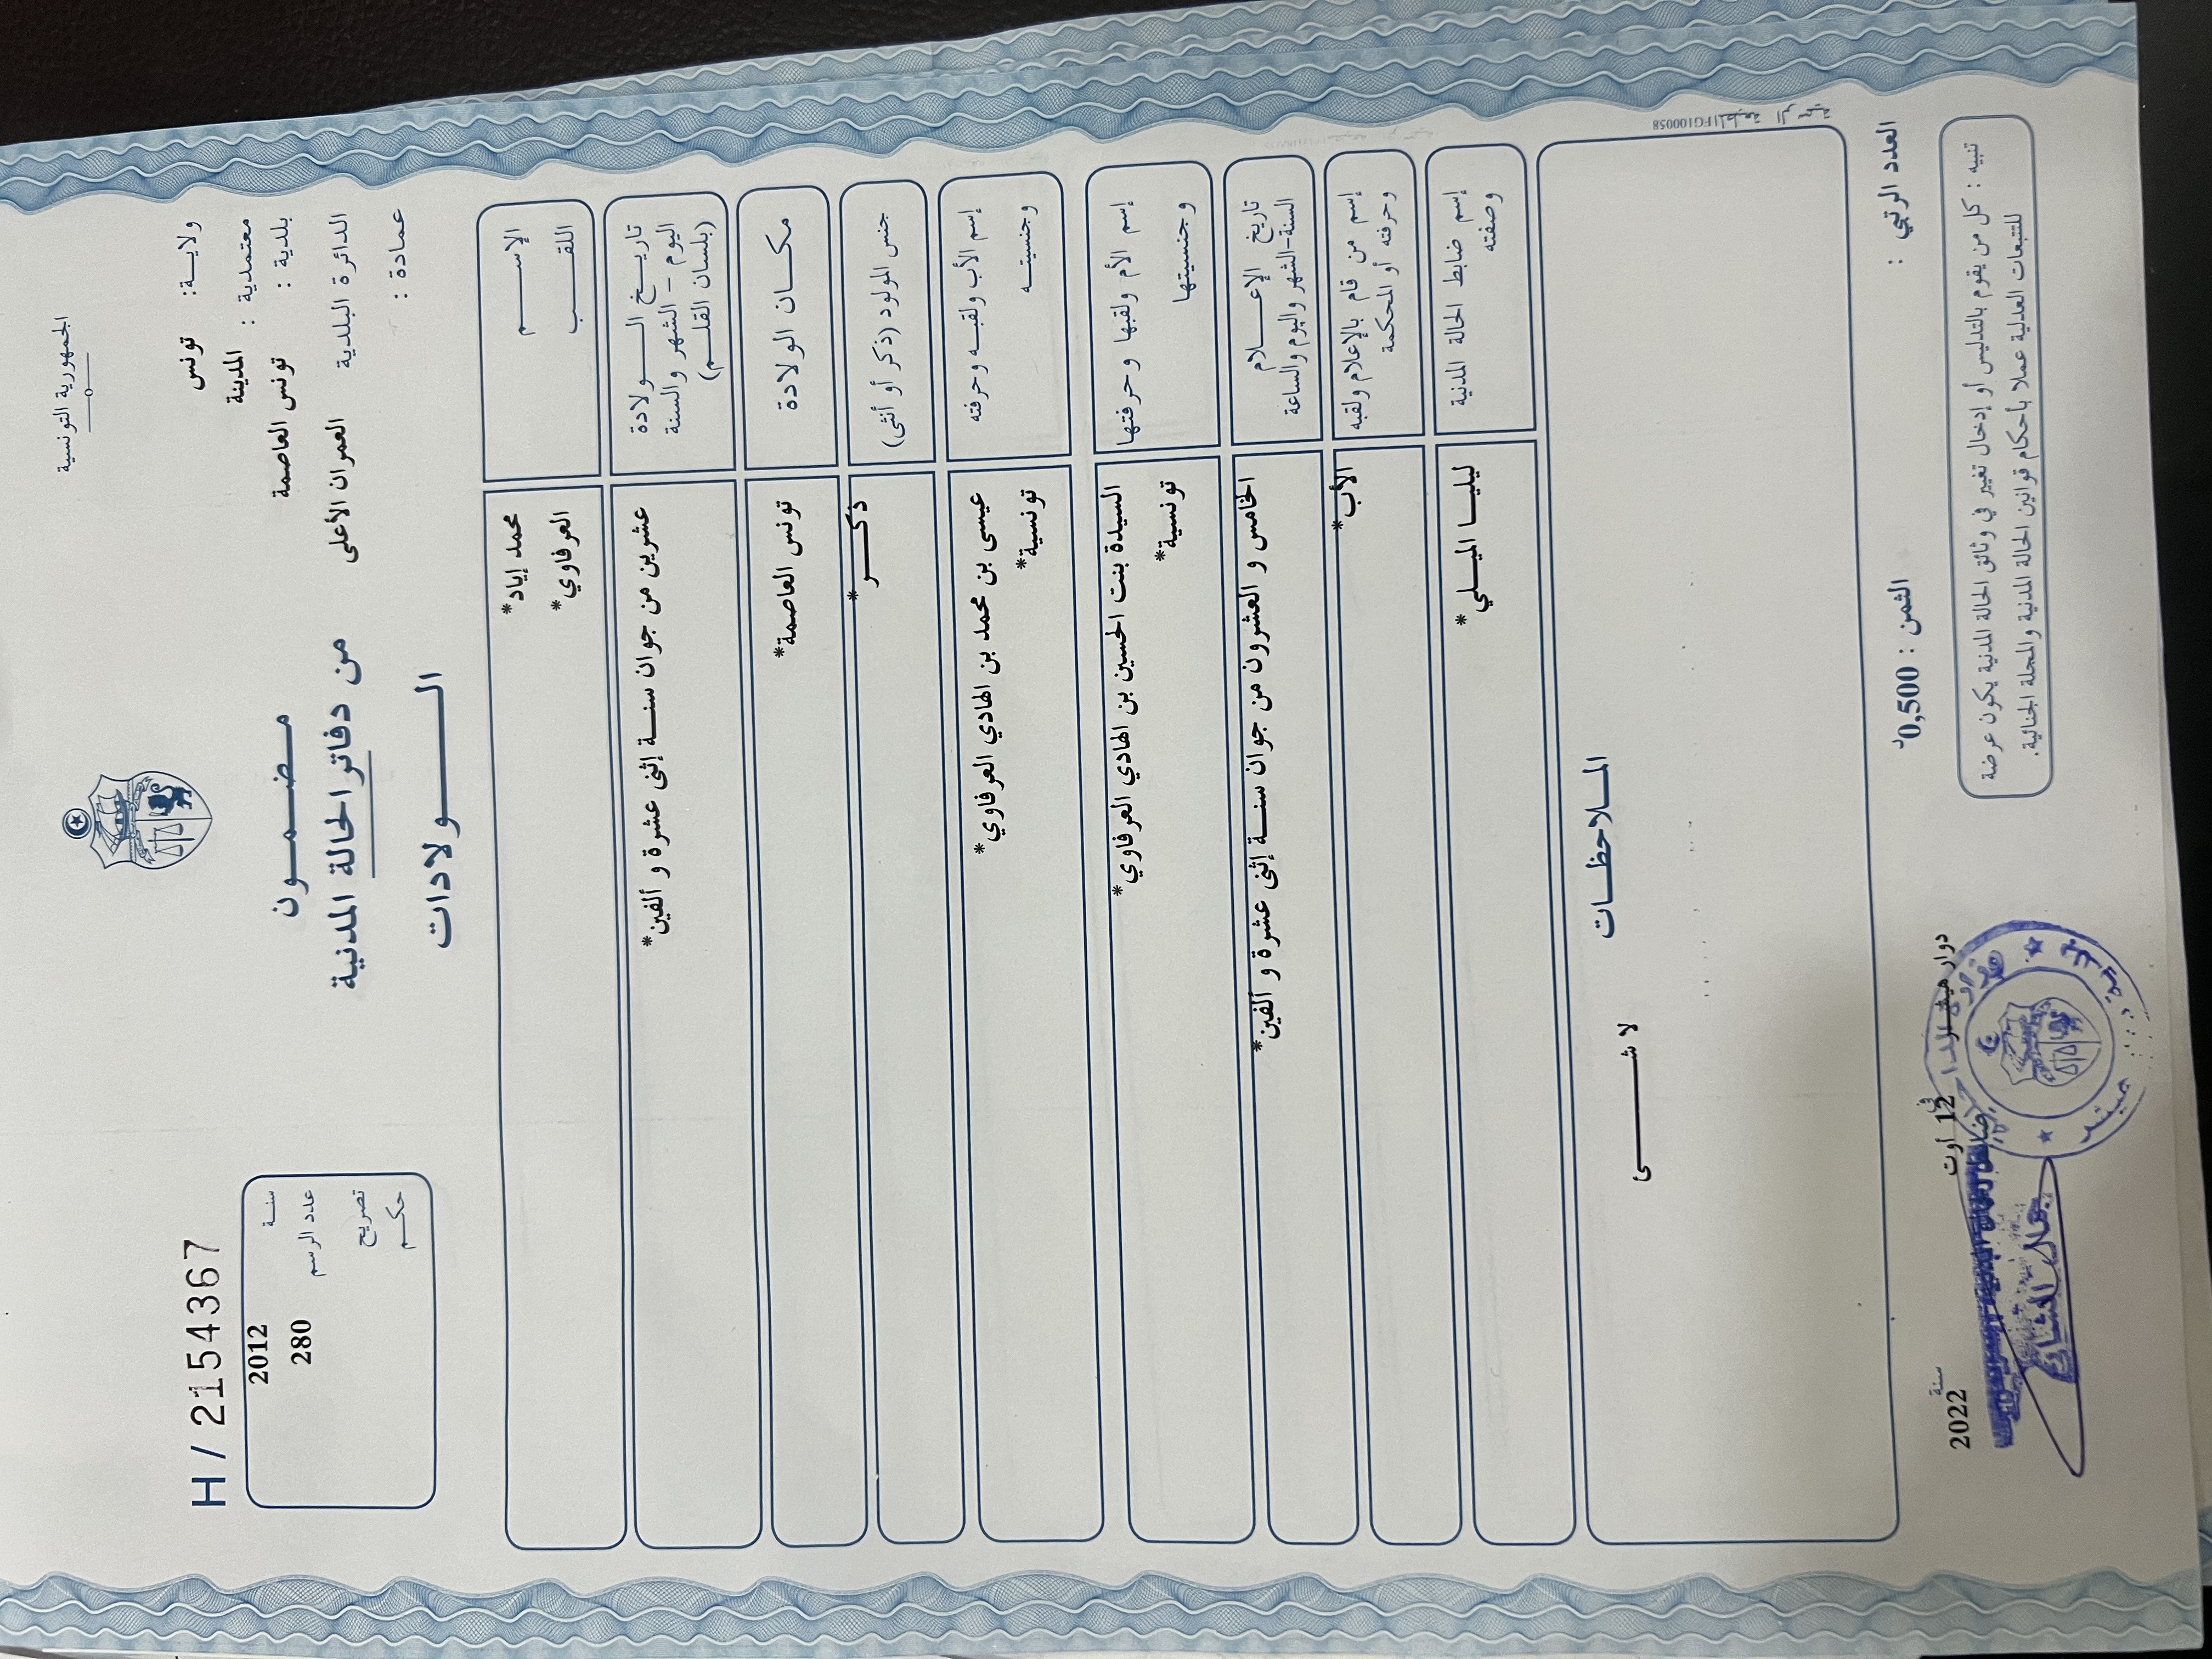 الجمهورية التونسية
ولاية: تونس
معتمدية : المدينة
بلدية : تونس العاصمة
الدائرة البلدية العمران الأعلى
عمادة :
مضمون
من دفاتر الحالة المدنية
الولادات
H / 2154367
سنة 2012
عدد الرسم 280
تصريح
حكم
الإسم محمد إياد*
اللقب العرفاوي*
تاريخ الولادة
اليوم - الشهر والسنة
(بلسان القلم)
عشرين من جوان سنة إثنى عشرة و ألفين*
مكان الولادة تونس العاصمة*
جنس المولود (ذكر أو أنثى) ذكر*
إسم الأب ولقبه وحرفته عيسى بن محمد بن الهادي العرفاوي*
وجنسيته تونسية*
إسم الأم ولقبها وحرفتها السيدة بنت الحسين بن الهادي العرفاوي*
وجنسيتها تونسية*
تاريخ الإعلام
السنة-الشهر واليوم والساعة
الخامس و العشرون من جوان سنة إثنى عشرة و ألفين*
إسم من قام بالإعلام ولقبه
وحرفته أو المحكمة
الأب*
إسم ضابط الحالة المدنية
وصفته
ليليا الميلي*
الملاحظات
لا شئ
المطبعة الرسمية FG100058
العدد الرتبي :
الثمن : 0,500د
دوار هيشر
في 12 أوت
سنة 2022
تنبيه : كل من يقوم بالتدليس أو إدخال تغيير في وثائق الحالة المدنية يكون عرضة
للتتبعات العدلية عملا بأحكام قوانين الحالة المدنية والمجلة الجنائية.